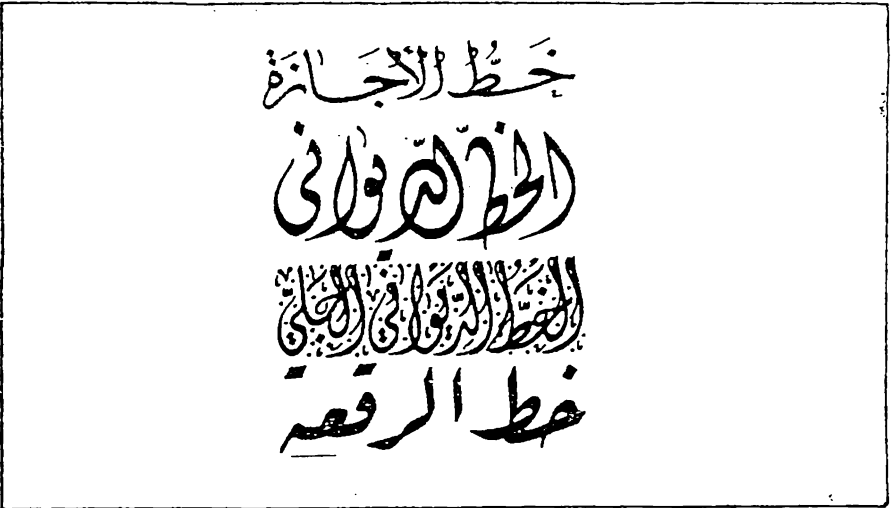 خَطُّ الْأجَازَة
الخطّ الدّيوانى
الخَطُّ الدِّيوَانِي الجَلِيّ
خط الرقعة